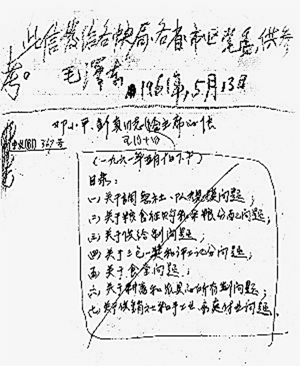 此信发给各中央局,各省、市、区党委,供参
考。
毛泽东
1961年,5月13日
邓小平、彭真同志给主席的信
(一九六一年五月十日)
目录:
(一)关于调整社、队规模问题;
(二)关于粮食征购和余粮分配问题;
(三)关于供给制问题;
(四)关于三包一奖和评工记分问题;
(五)关于食堂问题;
(六)关于耕畜和农具的所有制问题;
(七)关于供销社和手工业、家庭付业问题